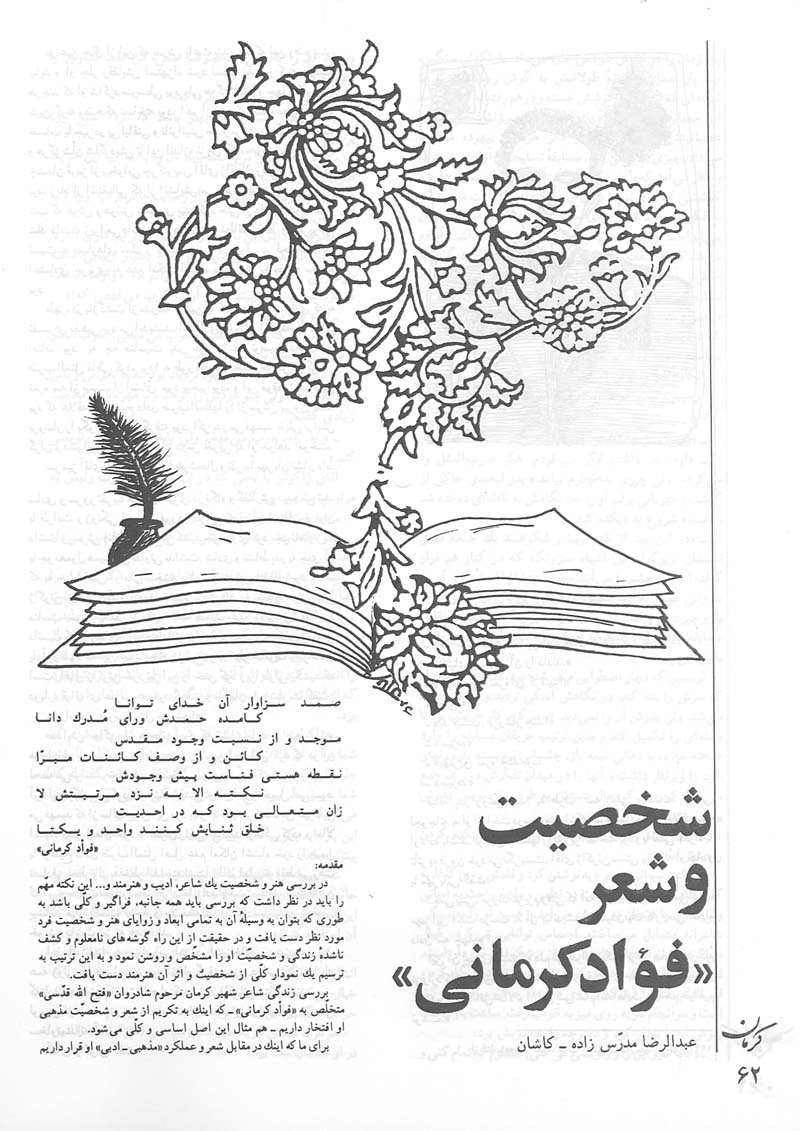 شخصیت
وشعر
«فؤاد کرمانی»
عبدالرضا مدرّس زاده ــ کاشان
صمد سزاوار آن خدای توانا
کامده حمدش ورای مُدرك دانا
موجد و از نسبت وجود مقدس
کائن و از وصف کائنات مبرّا
نقطه هستی فناست پیش وجودش
نکته الا به نزد مرتبتش لا
زان متعالی بود که در احدیت
خلق ثنایش کنند واحد و یکتا
«فواد کرمانی»
مقدمه:
در بررسی هنر و شخصیت یك شاعر، ادیب و هنرمند و... این نکته مهّم
را باید در نظر داشت که بررسی باید همه جانبه، فراگیر و کلّی باشد به
طوری که بتوان به وسیلهٔ آن به تمامی ابعاد و زوایای هنر و شخصیت فرد
مورد نظر دست یافت و در حقیقت از این راه گوشه‌های نامعلوم و کشف
ناشدهٔ زندگی و شخصیّت او را مشخص و روشن نمود و به این ترتیب به
ترسیم یك نمودار کلّی از شخصیتْ و اثر آن هنرمند دست یافت.
بررسی زندگی شاعر شهیر کرمان مرحوم شادروان «فتح الله قدّسی»
متخلّص به «فوأد کرمانی» ــ که اینك به تکریم از شعر و شخصیّت مذهبی
او افتخار داریم ــ هم مثال این اصل اساسی و کلّی می‌شود.
برای ما که اینك در مقابل شعر و عملکرد «مذهبی ــ ادبی» او قرار داریم
کرمان
۶۲